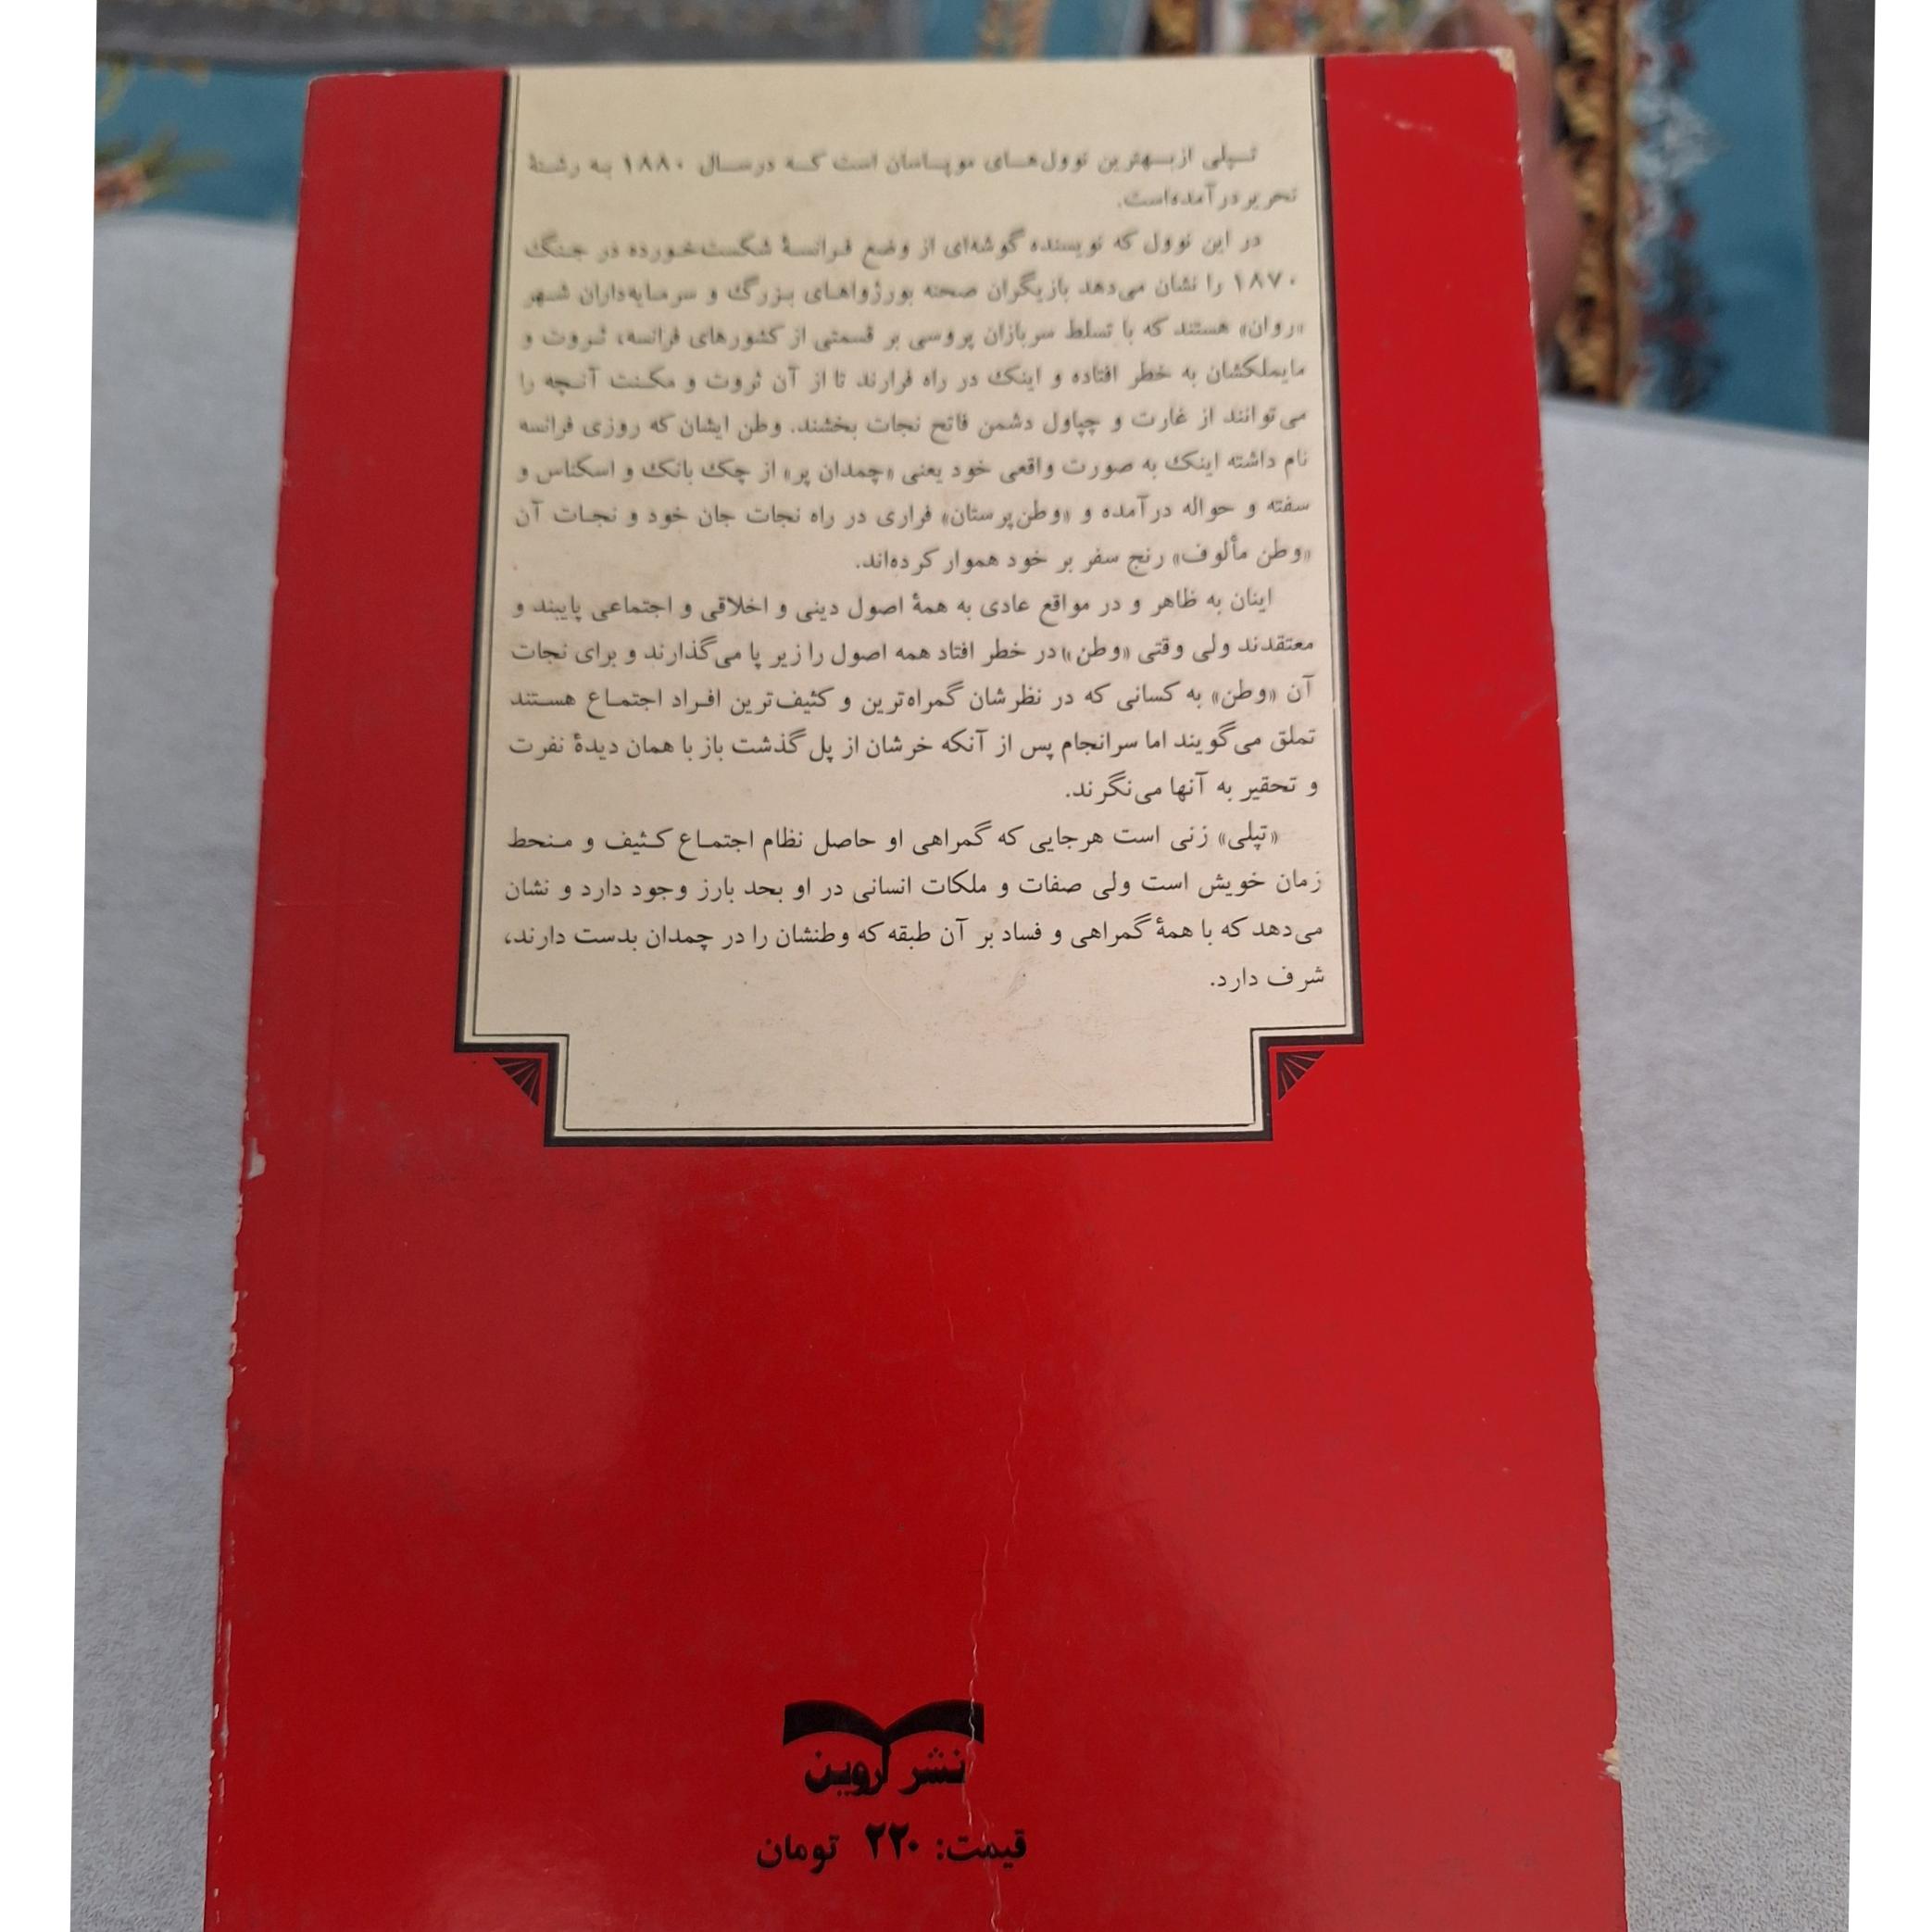 تپلی از بهترین نوول‌های موپاسان است که در سال ۱۸۸۰ به رشتهٔ
تحریر درآمده‌است.
در این نوول که نویسنده گوشه‌ای از وضع فرانسهٔ شکست‌خورده در جنگ
۱۸۷۰ را نشان می‌دهد بازیگران صحنه بورژواهای بزرگ و سرمایه‌داران شهر
«روان» هستند که با تسلط سربازان پروسی بر قسمتی از کشورهای فرانسه، ثروت و
مایملکشان به خطر افتاده و اینک در راه فرارند تا از آن ثروت و مکنت آنچه را
می‌توانند از غارت و چپاول دشمن فاتح نجات بخشند. وطن ایشان که روزی فرانسه
نام داشته اینک به صورت واقعی خود یعنی «چمدان پر» از چک بانک و اسکناس و
سفته و حواله درآمده و «وطن‌پرستان» فراری در راه نجات جان خود و نجات آن
«وطن مألوف» رنج سفر بر خود هموار کرده‌اند.
اینان به ظاهر و در مواقع عادی به همهٔ اصول دینی و اخلاقی و اجتماعی پایبند و
معتقدند ولی وقتی «وطن» در خطر افتاد همه اصول را زیر پا می‌گذارند و برای نجات
آن «وطن» به کسانی که در نظرشان گمراه‌ترین و کثیف‌ترین افراد اجتماع هستند
تملق می‌گویند اما سرانجام پس از آنکه خرشان از پل گذشت باز با همان دیدهٔ نفرت
و تحقیر به آنها می‌نگرند.
«تپلی» زنی است هرجایی که گمراهی او حاصل نظام اجتماع کثیف و منحط
زمان خویش است ولی صفات و ملکات انسانی در او بحد بارز وجود دارد و نشان
می‌دهد که با همهٔ گمراهی و فساد بر آن طبقه که وطنشان را در چمدان بدست دارند،
شرف دارد.
نشر اروین
قیمت: ۲۲۰ تومان